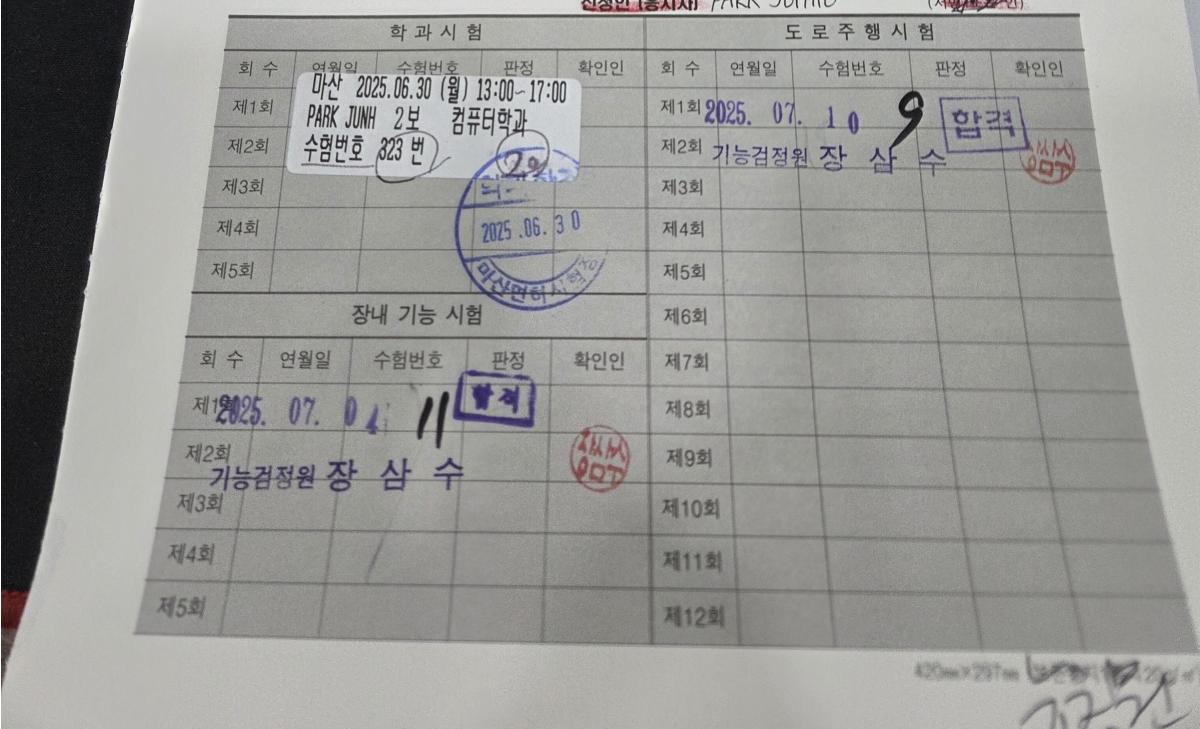 신청인 (응시자) PARK JUNHO
학 과 시 험
회 수 연월일 수험번호 판정 확인인
마산 2025.06.30 (월) 13:00~17:00
PARK JUNH 2보 컴퓨터학과
수험번호 323 번
제1회
제2회
제3회
제4회
제5회
2025.06.30
마산면허시험장
장내 기능 시험
회 수 연월일 수험번호 판정 확인인
제1회 2025. 07. 04 11 합격
제2회
기능검정원 장 삼 수
제3회
제4회
제5회
도 로 주 행 시 험
회 수 연월일 수험번호 판정 확인인
제1회 2025. 07. 10 9 합격
제2회 기능검정원 장 삼 수
제3회
제4회
제5회
제6회
제7회
제8회
제9회
제10회
제11회
제12회
420mm×297mm